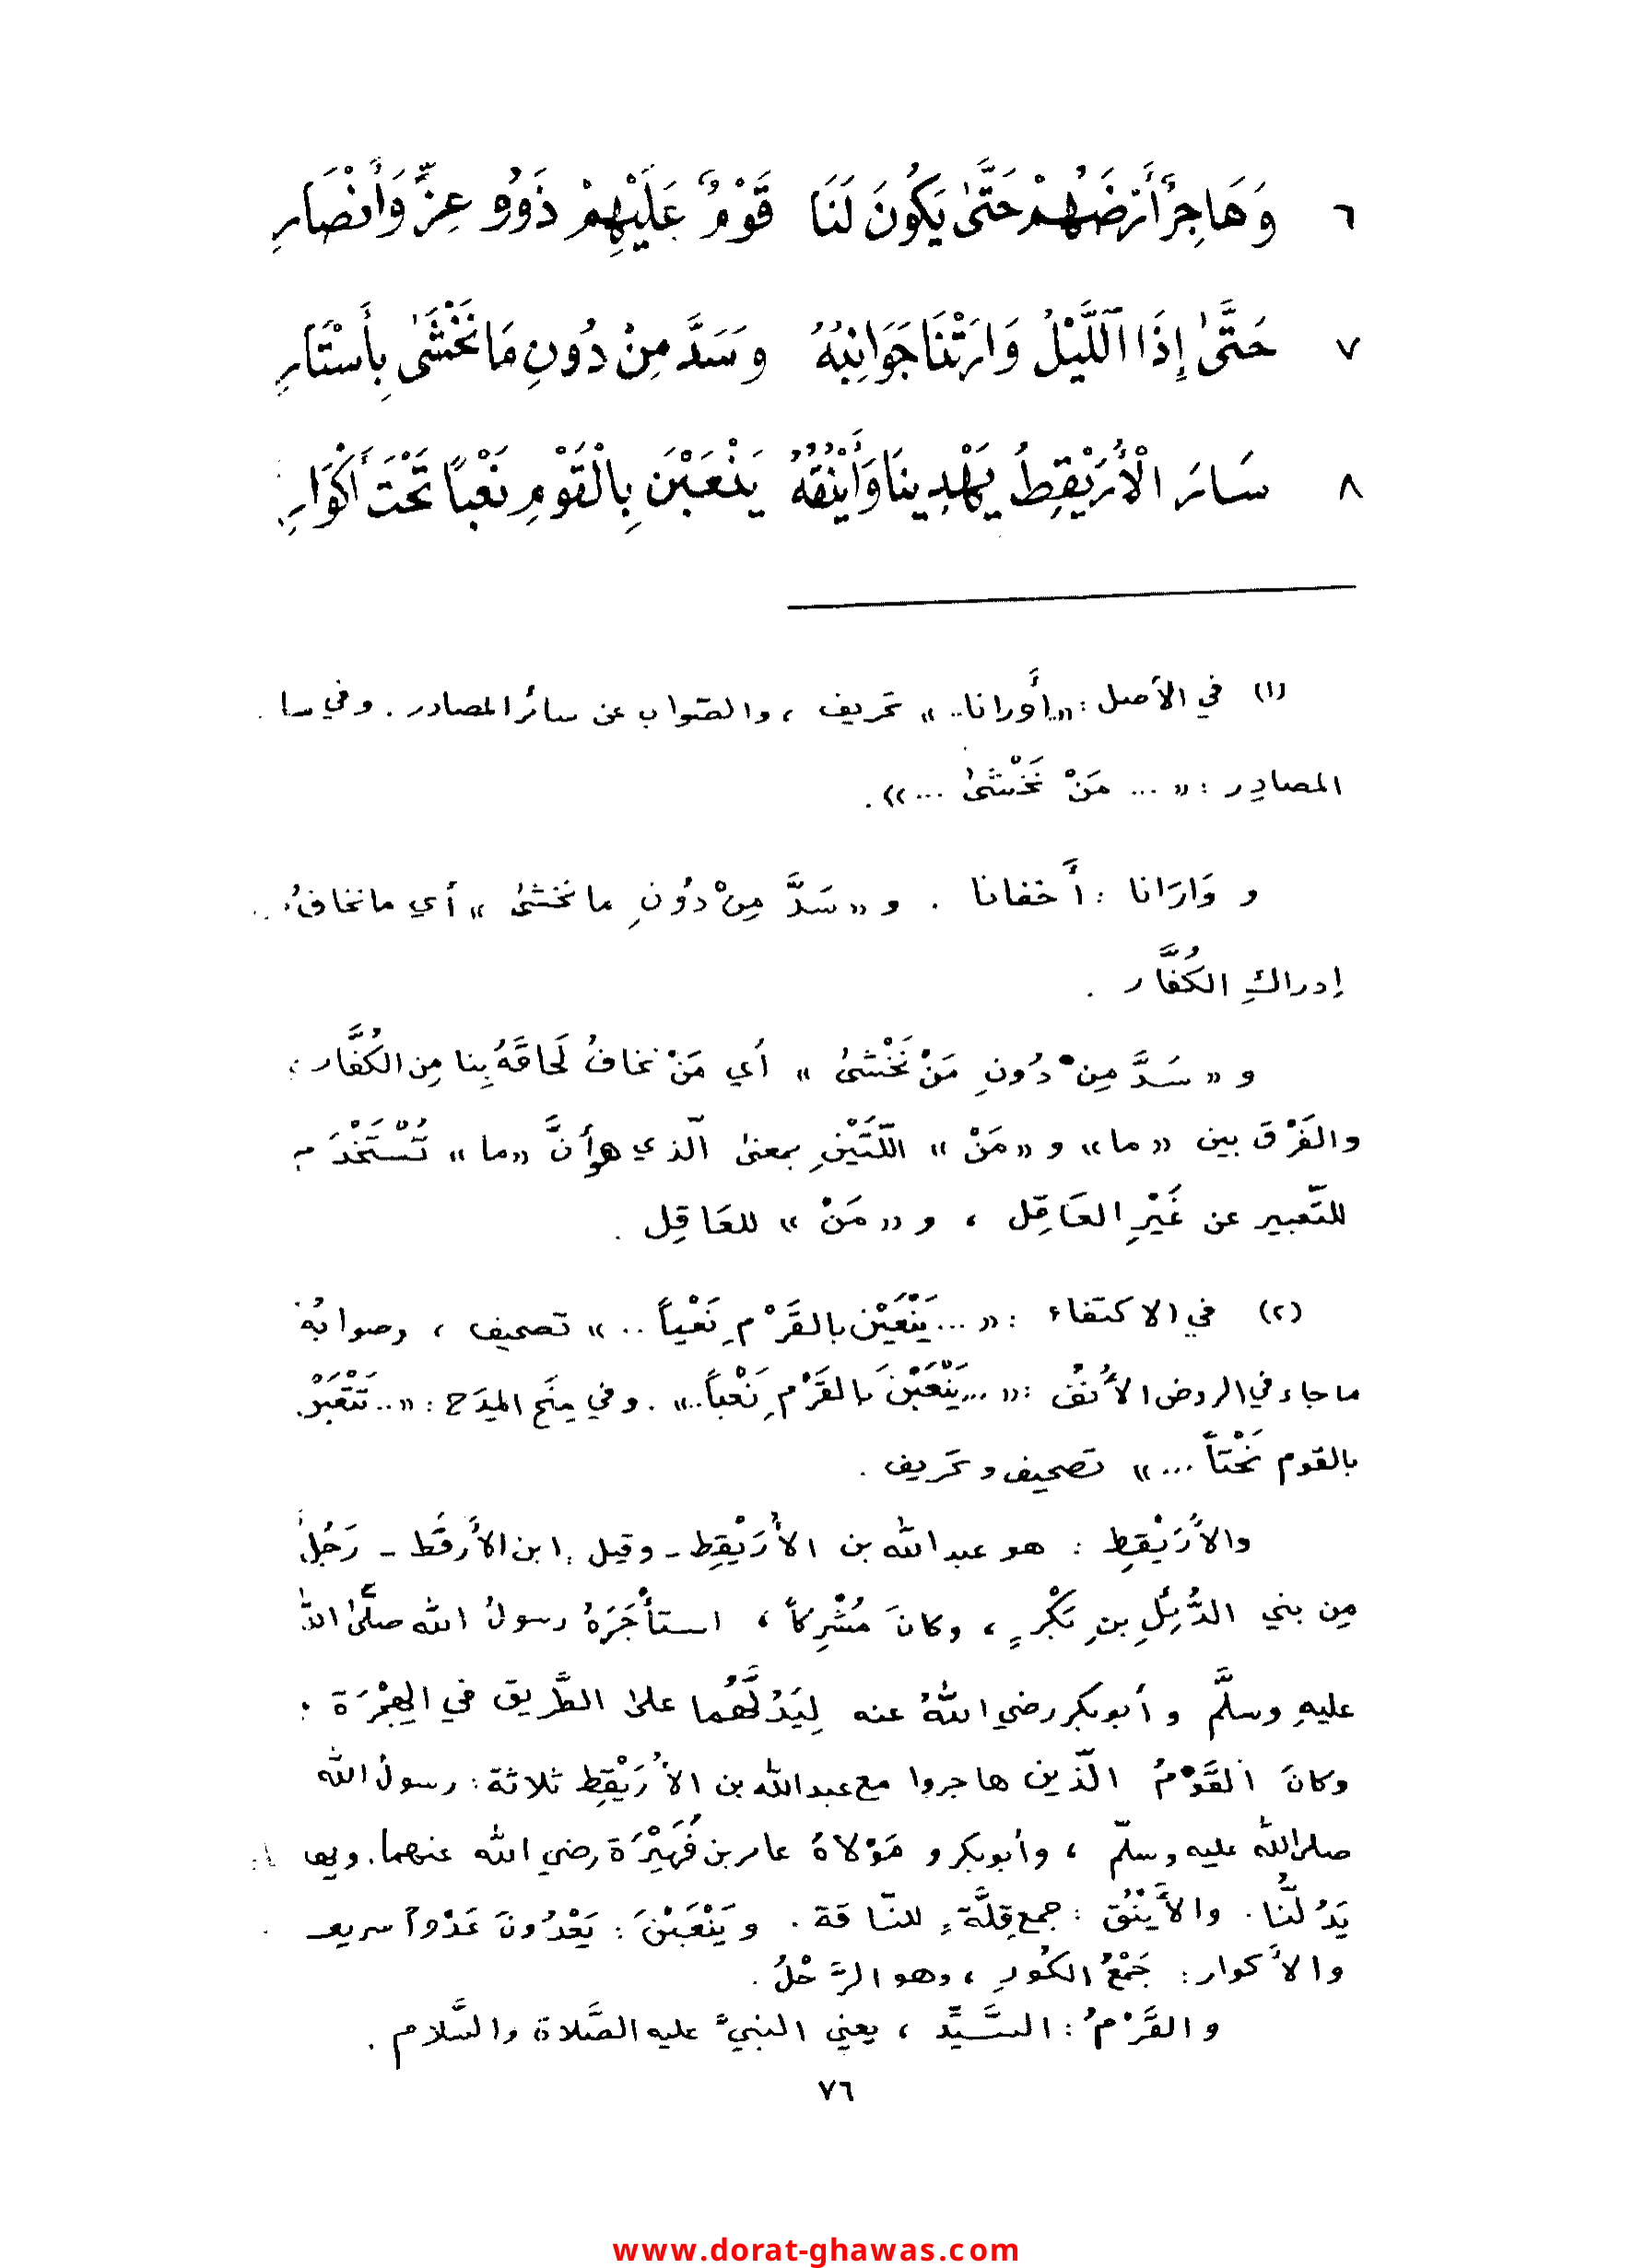 ٦ وَهَاجِرٌ أَرْضَهُمْ حَتَّىٰ يَكُونَ لَنَا قَوْمٌ عَلَيْهِمْ ذَوُو عِزٍّ وَأَنْصَارِ
٧ حَتَّىٰ إِذَا ٱللَّيْلُ وَارَتْنَا جَوَانِبُهُ وَسَدَّ مِنْ دُونِ مَا نَخْشَىٰ بِأَسْتَارِ
٨ سَارَ الْأُرَيْقِطُ يَهْدِينَا وَأَيْنُقُهُ يَنْعَبْنَ بِالْقَوْمِ نَعْباً تَحْتَ أَكْوَارِ
(١) في الأصل : «..أَورانا..» تحريف ، والصّواب عن سائر المصادر . وفي سا
المصادِر : «... مَنْ نَخْشَىٰ ...» .
و وَارَانا : أَخفانا . و «سَدَّ مِنْ دُونِ ما نخشىٰ» أي ما نخافُ
إدراكِ الكُفَّار .
و «سَدَّ مِنْ دُونِ مَنْ نَخْشىٰ» أي مَنْ نخافُ لَحاقَهُ بِنا مِن الكُفَّار ؛
والفَرْق بين «ما» و «مَنْ» اللّتَيْنِ بمعنىٰ الّذي هو أنَّ «ما» تُسْتَخْدَم
للتّعبير عن غَيْرِ العَاقِل ، و «مَنْ» للعَاقِل .
(٢) في الاكتفاء : «... يَنْعَيْنَ بالقَرْمِ نَعْياً ..» تصحيف ، وصوابُهُ
ما جاء في الروض الأُنُف : «... يَنْعَبْنَ بالقَرْمِ نَعْباً..» . وفي مِنَح المِدَح : «..تَتْعَبْنَ
بالقوم نَحْتاً ...» تصحيف وتحريف .
والأُرَيْقِط : هو عبد الله بن الأُرَيْقِط - وقيل : ابن الأَرقَط - رَجُلٌ
مِن بني الدُّئِلِ بنِ بَكْرٍ ، وكانَ مُشْرِكاً ، استأْجَرَهُ رسولُ الله صلَّىٰ الله
عليهِ وسلَّم و أبو بكر رضي اللهُ عنه لِيَدُلَّهُما علىٰ الطَّريق في الهِجْرَة ؛
وكانَ القَوْمُ الّذين هاجروا مع عبد الله بن الأُرَيْقِط ثلاثة : رسولُ الله
صلى الله عليه وسلّم ، وأبو بكر و مَوْلاهُ عامر بن فُهَيْرَة رضي الله عنهما .
يَدُلُّنا . والأَيْنُق : جمع قِلَّةٍ للنّاقة . و يَنْعَبْنَ : يَعْدُونَ عَدْواً سريعـ
والأَكوار : جَمْعُ الكُورِ ، وهو الرَّحْلُ .
و القَرْمُ : السَّيِّد ، يعني النبيَّ عليه الصَّلاة والسَّلام .
٧٦
www.dorat-ghawas.com